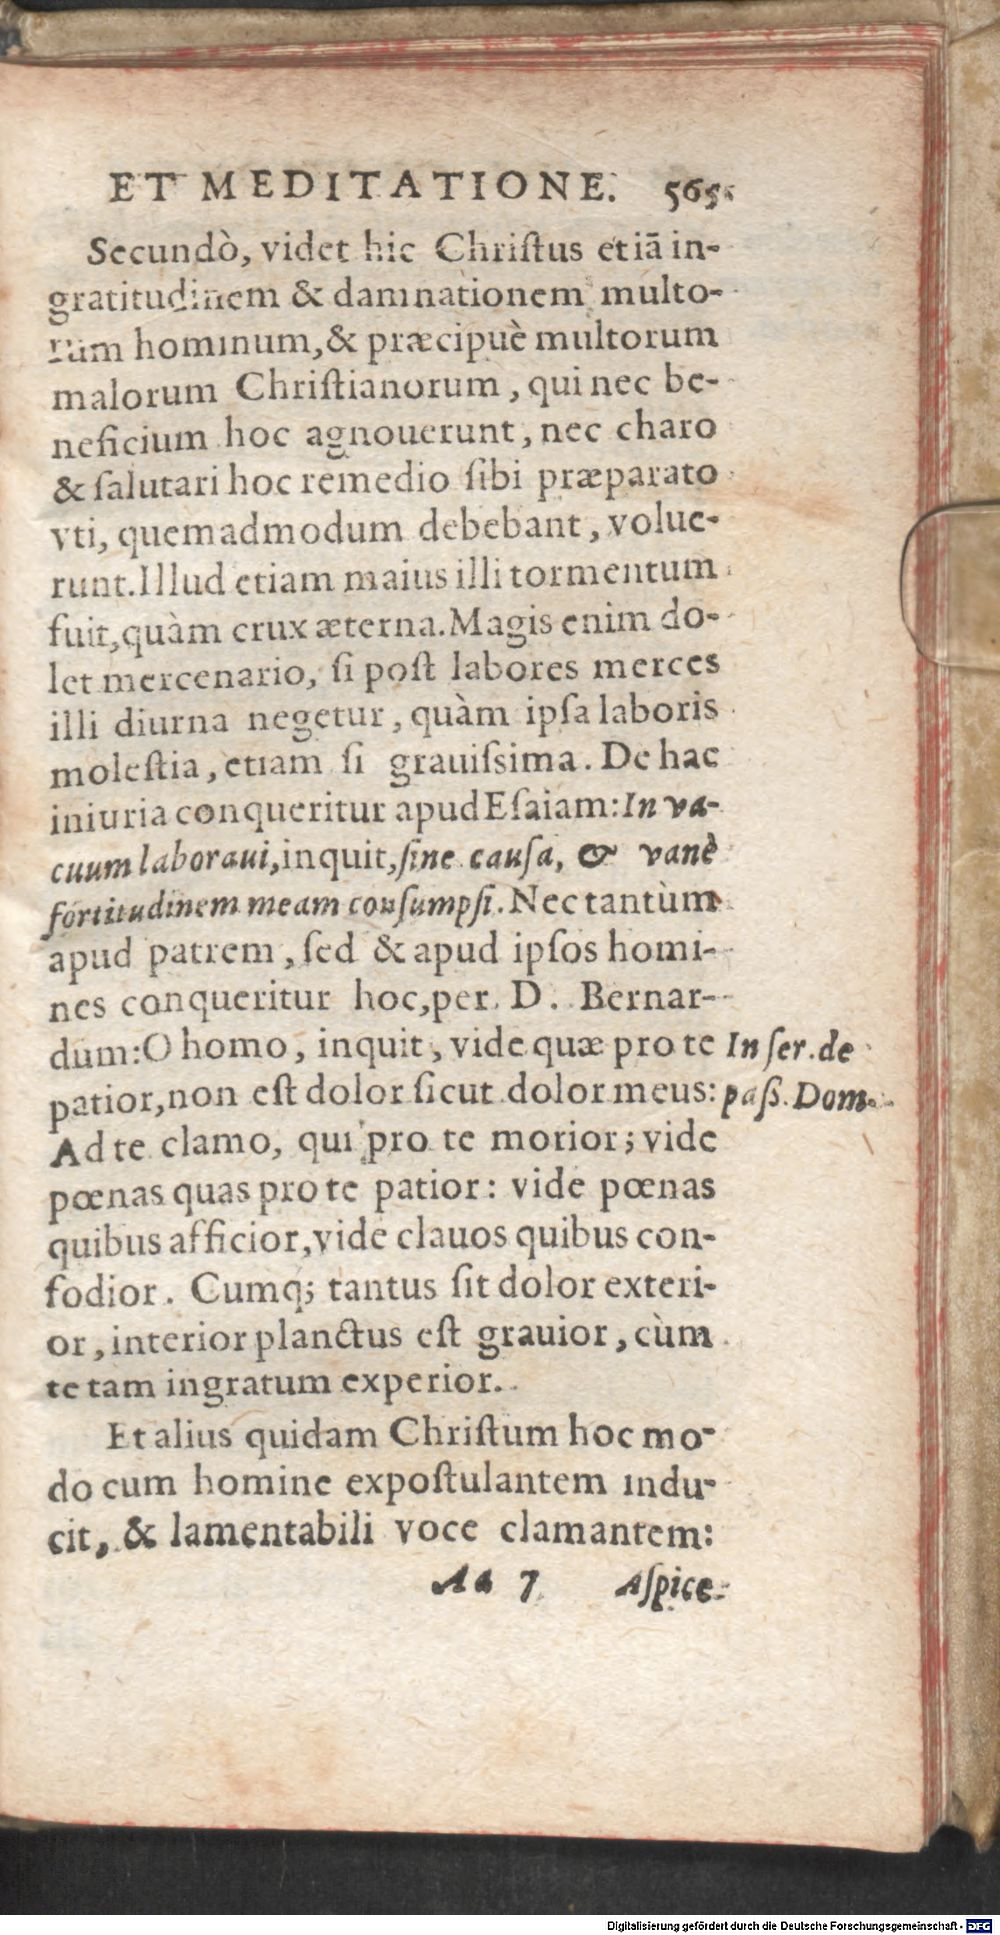 ET MEDITATIONE. 565.
Secundò, videt hic Christus etiā in-
gratitudinem & damnationem multo-
rum hominum, & præcipuè multorum
malorum Christianorum, qui nec be-
neficium hoc agnouerunt, nec charo
& salutari hoc remedio sibi præparato
vti, quemadmodum debebant, volue-
runt. Illud etiam maius illi tormentum
fuit, quàm crux æterna. Magis enim do-
let mercenario, si post labores merces
illi diurna negetur, quàm ipsa laboris
molestia, etiam si grauissima. De hac
iniuria conqueritur apud Esaiam: In va-
cuum laboraui, inquit, sine causa, & vanè
fortitudinem meam consumpsi. Nec tantùm
apud patrem, sed & apud ipsos homi-
nes conqueritur hoc, per D. Bernar-
dum: O homo, inquit, vide quæ pro te In ser. de
patior, non est dolor sicut dolor meus: pass. Dom.
Ad te clamo, qui pro te morior; vide
pœnas quas pro te patior: vide pœnas
quibus afficior, vide clauos quibus con-
fodior. Cumq; tantus sit dolor exteri-
or, interior planctus est grauior, cùm
te tam ingratum experior.
Et alius quidam Christum hoc mo-
do cum homine expostulantem indu-
cit, & lamentabili voce clamantem:
Aa 7 Aspice
Digitalisierung gefördert durch die Deutsche Forschungsgemeinschaft - DFG